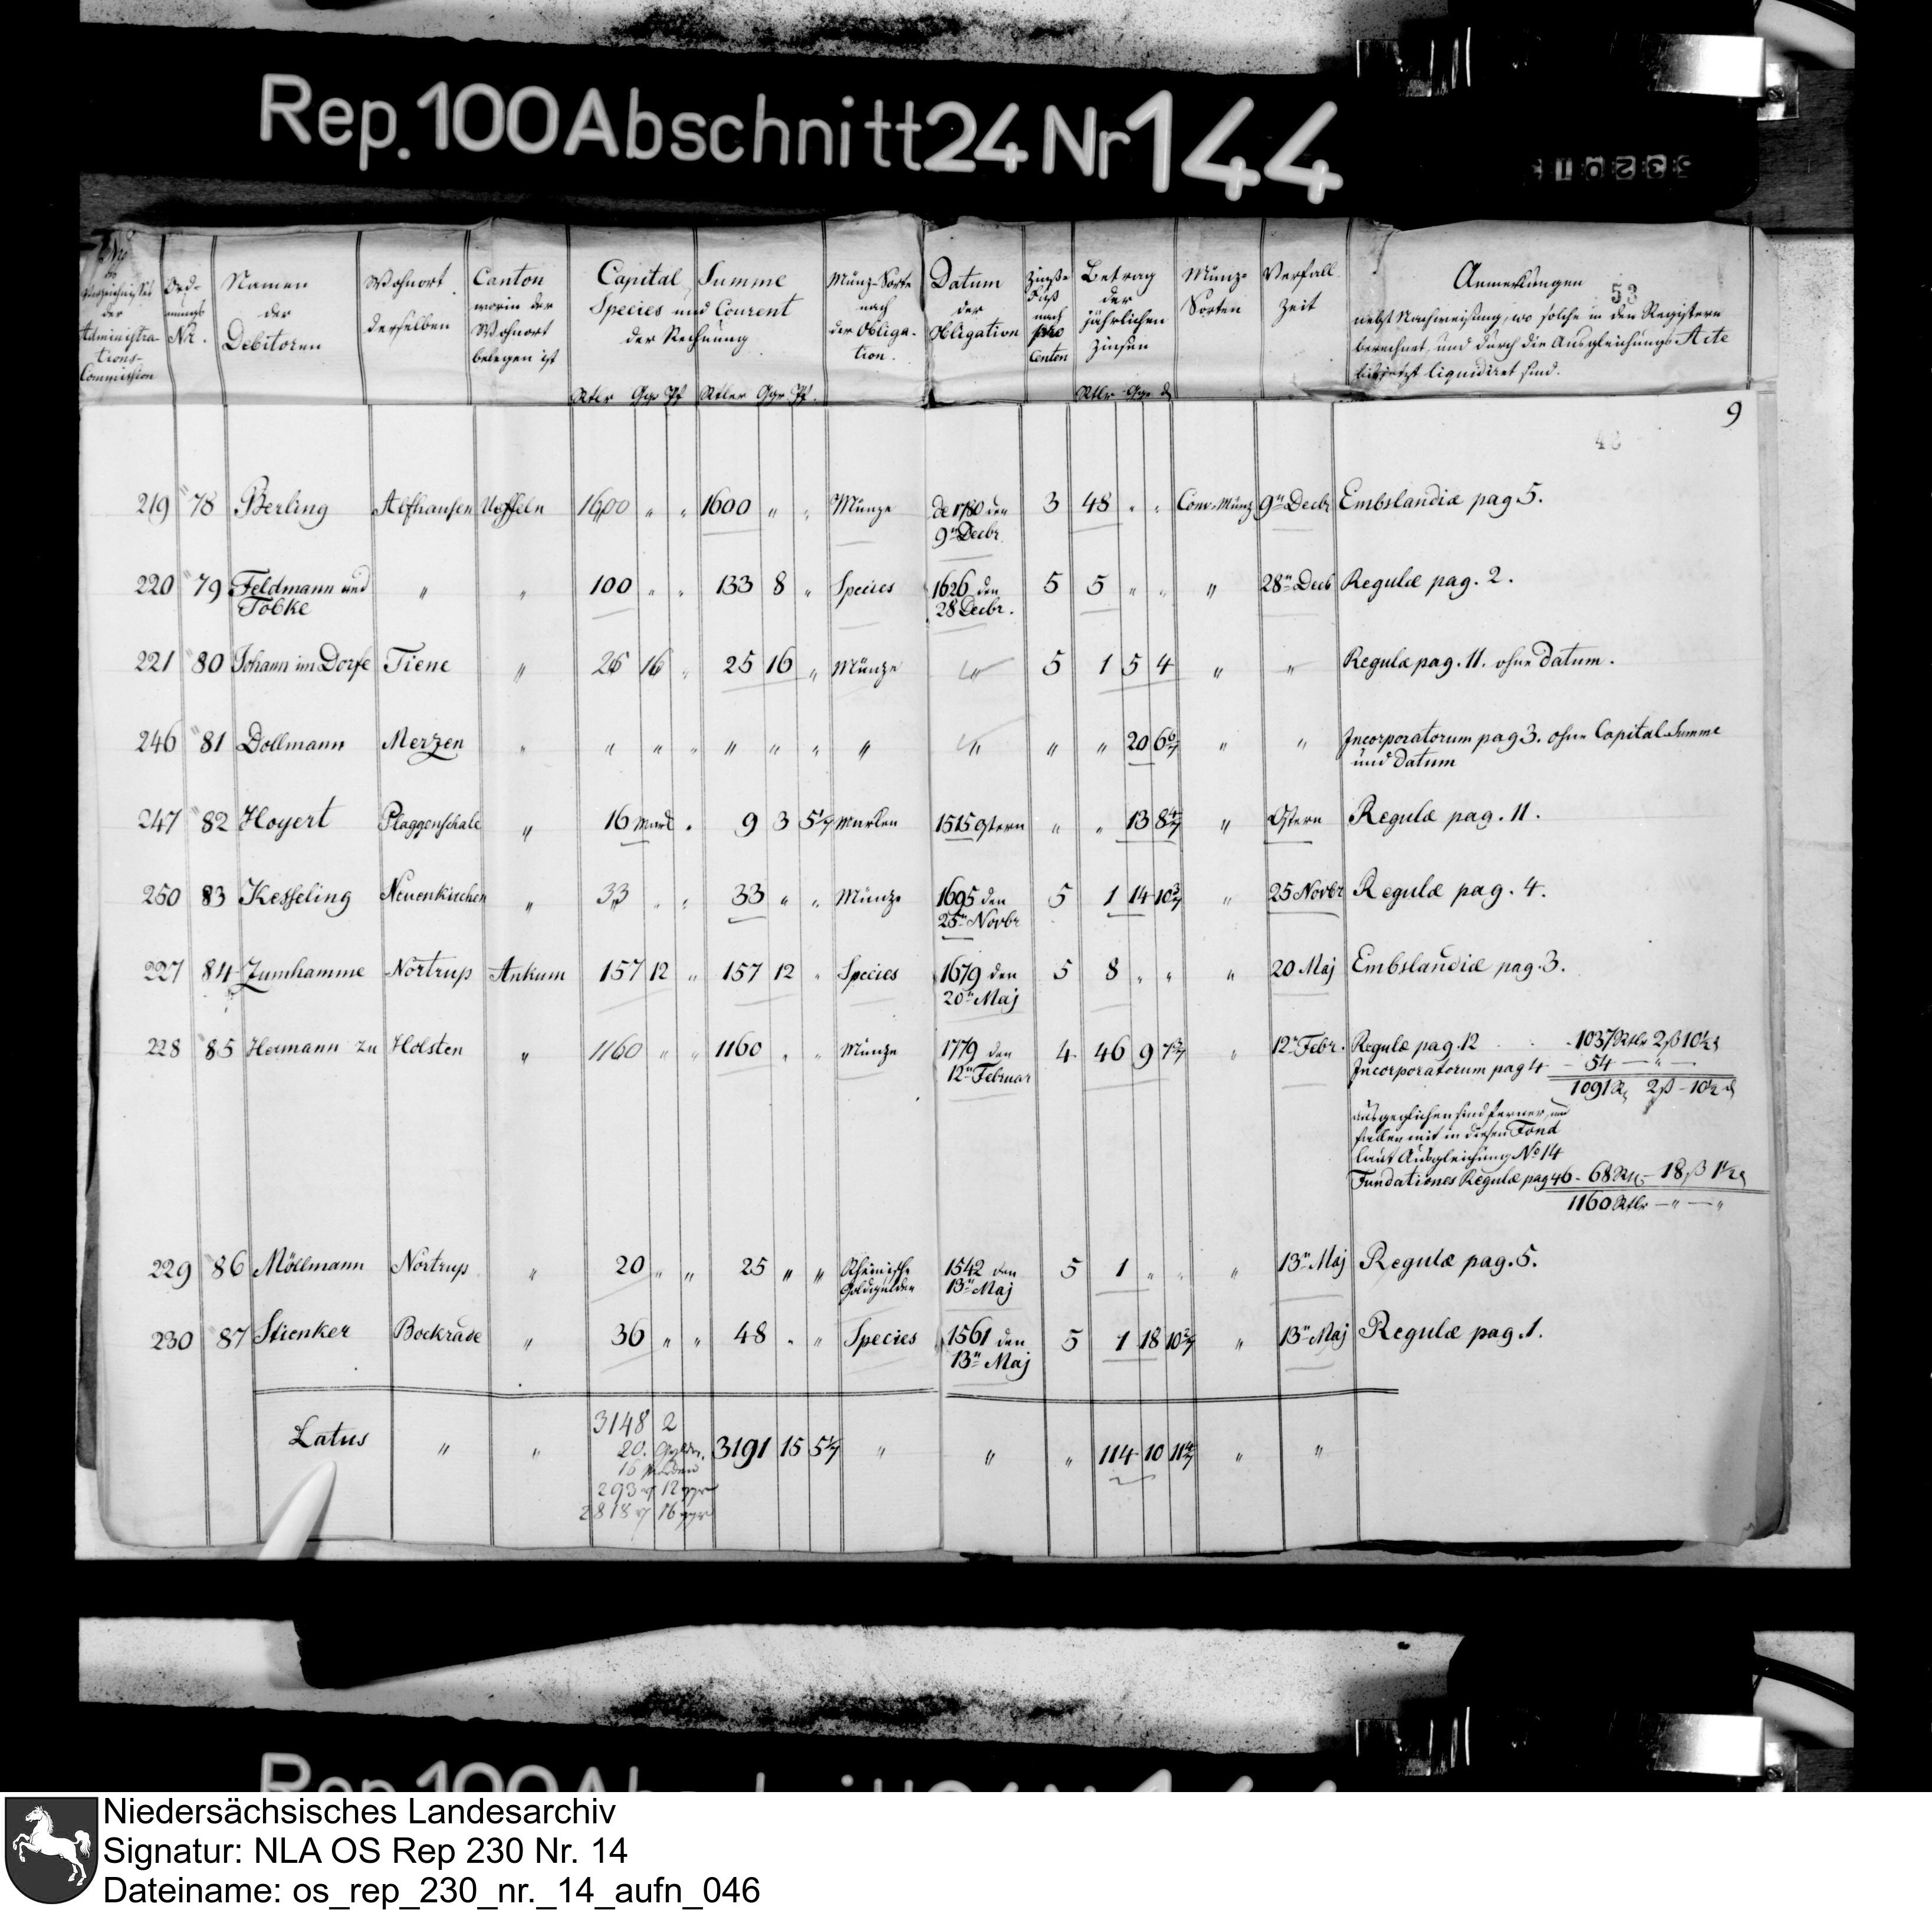 Rep. 100 Abschnitt 24 Nr 144
53
Ordnungs Nr.
Namen der Debitoren
Wohnort derselben
Canton worin der Wohnort belegen ist
Capital Summe Species und Courent der Rechnung
Münz-Sorte nach der Obligation.
Datum der Obligation
Zinß-Fuß nach pro Centen
Betrag der jährlichen Zinsen
Münz-Sorten
Verfall Zeit
Anmerkungen
nebst Nachweisung, wo solche in den Registern
berechnet, und durch die Ausgleichungs Acte
liquidiret sind.
Rtlr Ggr Pf Rtler Ggr Pf. Rtlr Ggr d
9
219 78 Berling Alfhausen Ueffeln 1600 " " 1600 " " Münze de 1780 den 9n Decbr 3 48 " " Conv. Münz 9n Decbr Embslandiæ pag 5.
220 79 Feldmann und Tobke " " 100 " " 133 8 " Species 1626 den 28 Decbr. 5 5 " " " 28n Decb Regulæ pag. 2.
221 80 Johann im Dorfe Tiene " 25 16 " 25 16 " Münze " 5 1 5 4 " " Regulæ pag. 11. ohne Datum.
246 81 Dollmann Merzen " " " " " " " " " " " 20 6 6/7 " " Incorporatorum pag 3. ohne Capital Summe
und Datum
247 82 Hoyert Plaggenschale " 16 Mark " 9 3 5 1/7 Marken 1515 Ostern " " 13 8 4/7 " Ostern Regulæ pag. 11.
250 83 Kesseling Neuenkirchen " 33 " " 33 " " Münze 1695 den 25n Novbr 5 1 14 10 3/7 " 25 Novbr Regulæ pag. 4.
227 84 Zumhamme Nortrup Ankum 157 12 " 157 12 " Species 1679 den 20n Maj 5 8 " " " 20 Maj Embslandiæ pag. 3.
228 85 Hermann zu Holsten " 1160 " " 1160 " " Münze 1779 den 12n Februar 4 46 9 7 3/7 " 12n Febr. Regulæ pag. 12 1037 Rtlr 2 ß 10 1/2 d
Incorporatorum pag 4 - 54 — " —
1091 R 2 ß - 10 1/2 d
ausgeglichen sind ferner, und
fallen mit in diesen Fond
laut Ausgleichung No 14
Fundationes Regulæ pag 46 - 68 Rtl - 18 ß 1 1/2 d
1160 Rtlr — " — "
229 86 Möllmann Nortrup " 20 " " 25 " " Rheinische Goldgulden 1542 den 13n Maj 5 1 " " " 13n Maj Regulæ pag. 5.
230 87 Stienker Bockrade " 36 " " 48 " " Species 1561 den 13n Maj 5 1 18 10 2/7 " 13n Maj Regulæ pag. 1.
Latus " " 3148 2 3191 15 5 1/7 " " " 114 10 11 4/7 " "
20.
16 Marken
293 12 ggr
2818 16 ggr
Niedersächsisches Landesarchiv
Signatur: NLA OS Rep 230 Nr. 14
Dateiname: os_rep_230_nr._14_aufn_046